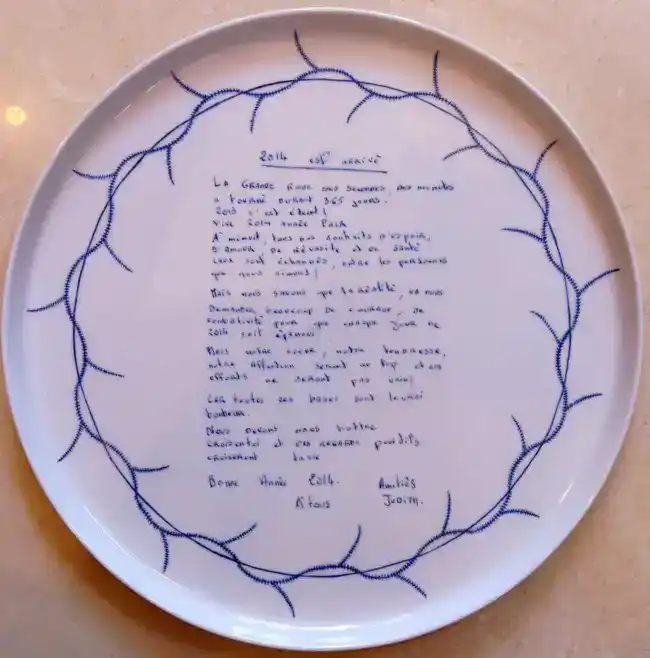 2014 est arrivé
La Grande Roue des secondes, des minutes
a tourné durant 365 jours.
2013 s'est éteint !
Vive 2014 année
A minuit, tous nos souhaits d'espoir,
d'amour, de réussite et de santé
se sont échangés, entre les personnes
que nous aimons !
Mais nous savons que la réalité, va nous
demander beaucoup de courage, de
combativité pour que chaque jour de
2014 soit épanoui
Mais notre coeur, notre tendresse,
notre affection seront au top et ces
efforts ne seront pas vains
Car toutes ces bases sont le vrai
bonheur.
Nous devons nous battre
et ces regards perdus
croiseront la vie
Bonne Année 2014. Amitiés
A tous Judith.